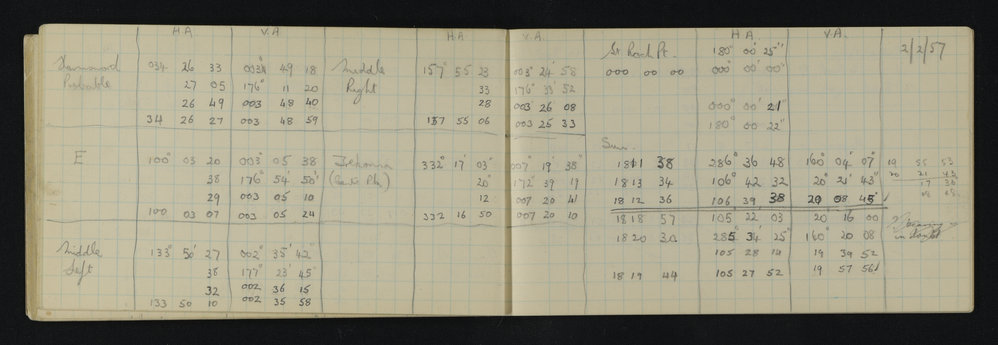 H.A. V.A.
Hammond 034 26 33 003° 49 18
Probable 27 05 176° 11 20
26 49 003 48 40
34 26 27 003 48 59
E 100° 03 20 003° 05 38
38 176° 54' 50"
29 003 05 10
100 03 07 003 05 24
Middle 133° 50' 27 002° 35' 42"
Left 38 177° 23' 45"
32 002 36 15
133 50 10 002 35 58
H.A. V.A.
Middle 157° 55 23 003° 24' 58
Right 33 176° 33' 52
28 003 26 08
157 55 06 003 25 33
332° 17' 03" 007° 19' 38"
20" 172° 39 19
12 007 20 41
332 16 50 007 20 10
H.A. V.A.
180° 00' 25" 2/2/57
000 00 00 000° 00' 00"
000° 00' 21"
180° 00 22"
Sun.
1811 38 286° 36 48 160° 04' 07" 19 55 53
1813 34 106° 42 32 20° 21' 43" 20 21 43
1812 36 106 39 38 20 08 45" 17 36
1818 57 105 22 03 20 16 00
1820 30 285° 34' 25" 160° 20 08
in doubt
105 28 14 19 39 52
1819 44 105 27 52 19 57 56